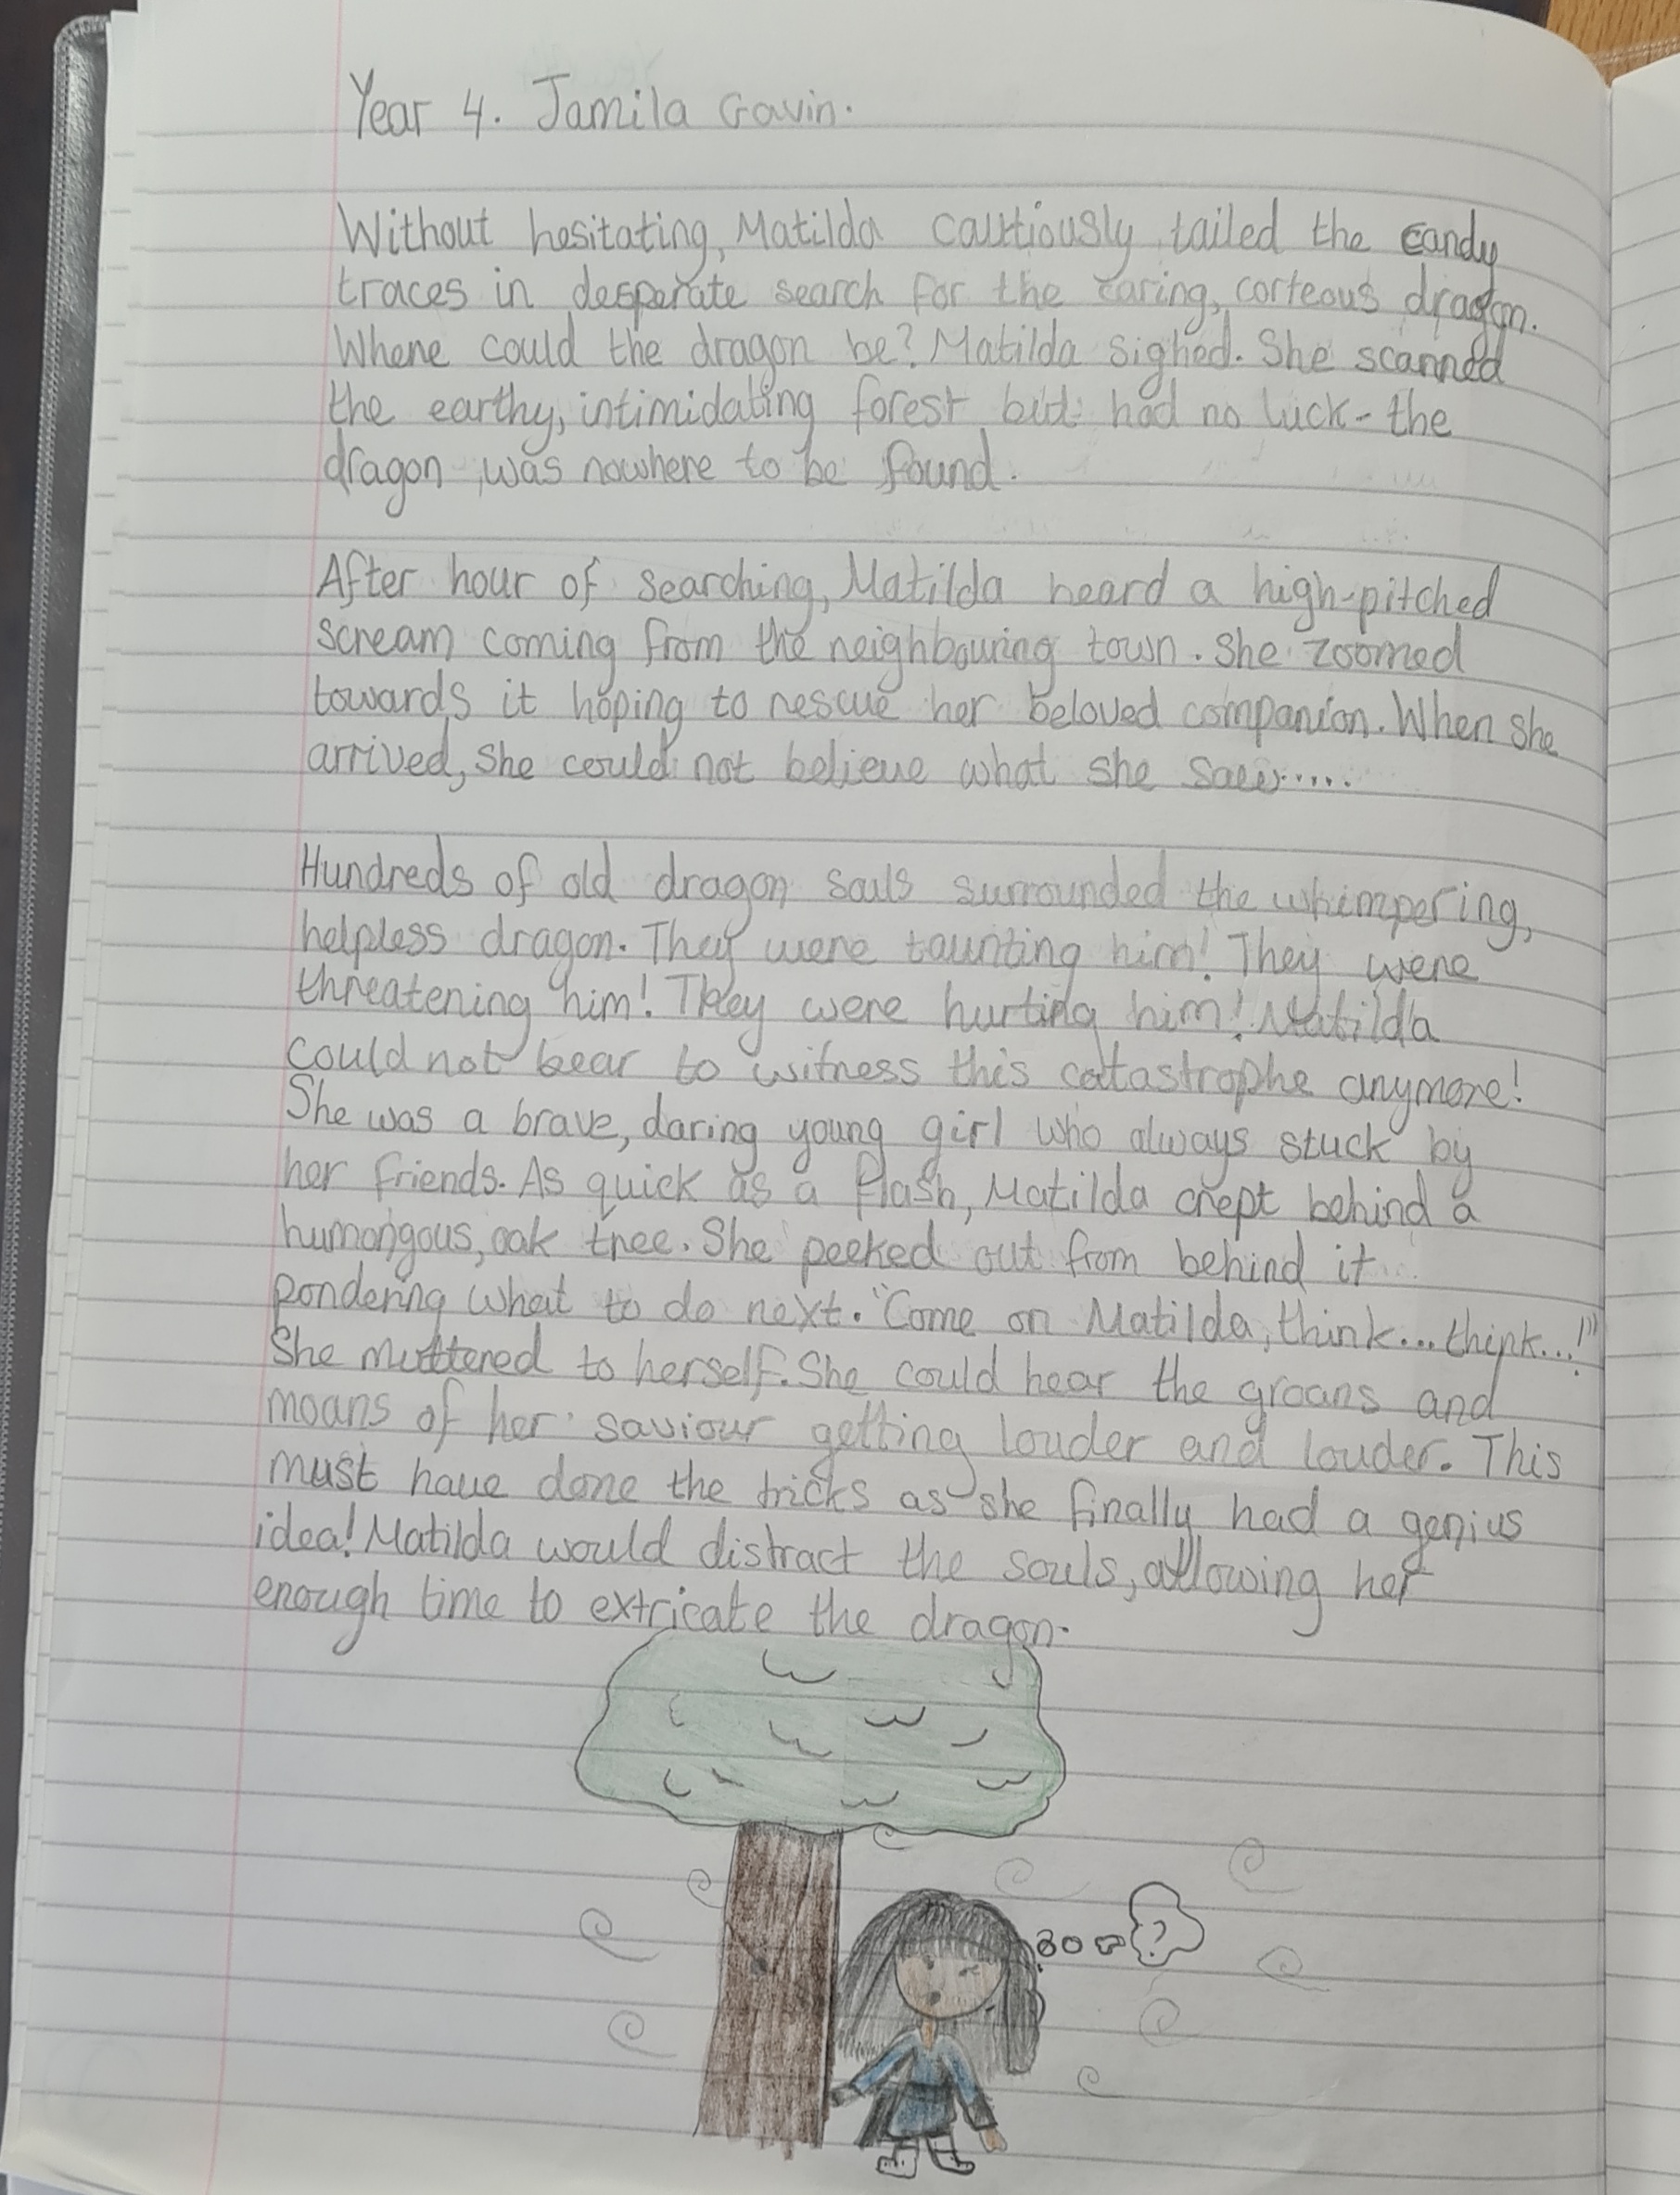 Year 4. Jamila Gavin.
Without hesitating, Matilda cautiously tailed the candy
traces in desperate search for the caring, corteous dragon.
Where could the dragon be? Matilda sighed. She scanned
the earthy, intimidating forest but had no luck - the
dragon was nowhere to be found.
After hour of searching, Matilda heard a high-pitched
scream coming from the neighbouring town. She zoomed
towards it hoping to rescue her beloved companion. When she
arrived, she could not believe what she saw.....
Hundreds of old dragon souls surrounded the whimpering,
helpless dragon. They were taunting him! They were
threatening him! They were hurting him! Matilda
could not bear to witness this catastrophe anymore!
She was a brave, daring young girl who always stuck by
her friends. As quick as a flash, Matilda crept behind a
humongous, oak tree. She peeked out from behind it
pondering what to do next. "Come on Matilda, think... think...!"
She muttered to herself. She could hear the groans and
moans of her saviour getting louder and louder. This
must have done the tricks as she finally had a genius
idea! Matilda would distract the souls, allowing her
enough time to extricate the dragon.
?